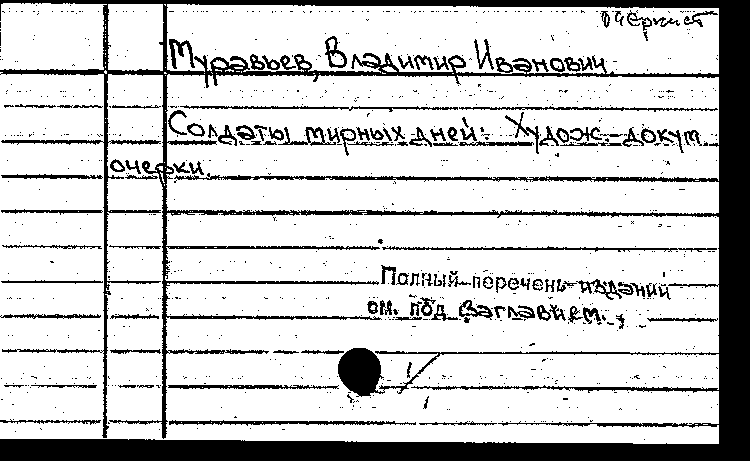 очеркист
Муравьев, Владимир Иванович.
Солдаты мирных дней: Худож.-докум.
очерки.
Полный перечень изданий
см. под заглавием.